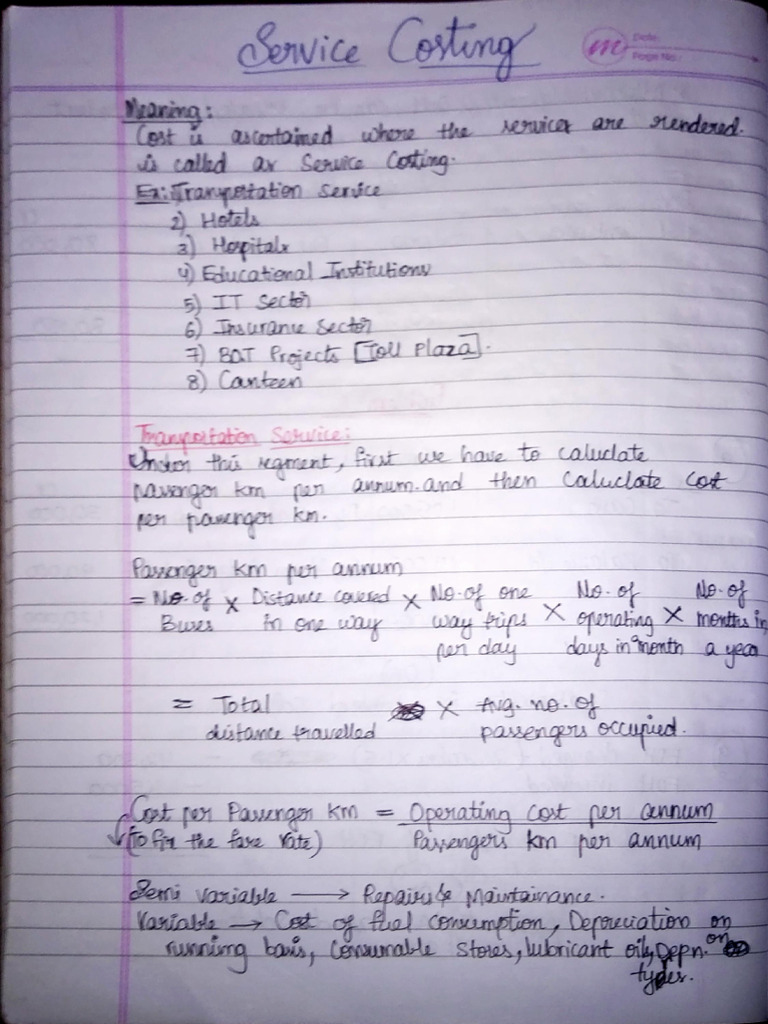 Service Costing
m
Date:
Page No:
Meaning:
Cost is ascertained where the services are rendered.
is called as Service Costing.
Ex: Transportation Service
2) Hotels
3) Hospitals
4) Educational Institutions
5) IT Sector
6) Insurance Sector
7) BOT Projects [Toll Plaza].
8) Canteen
Transportation Service:
Under this segment, first we have to caluclate
passenger km per annum. and then caluclate cost
per passenger km.
Passenger km per annum
= No. of × Distance covered × No. of one No. of No. of
Buses in one way way trips × operating × months in
per day days in month a year
= Total × Avg. no. of
distance travelled passengers occupied.
Cost per Passenger km = Operating cost per annum
(To fix the fare rate) Passengers km per annum
Semi variable → Repairs & Maintainance.
Variable → Cost of fuel consumption, Depreciation on
running basis, Consumable stores, lubricant oils, Depn. on
tyres.